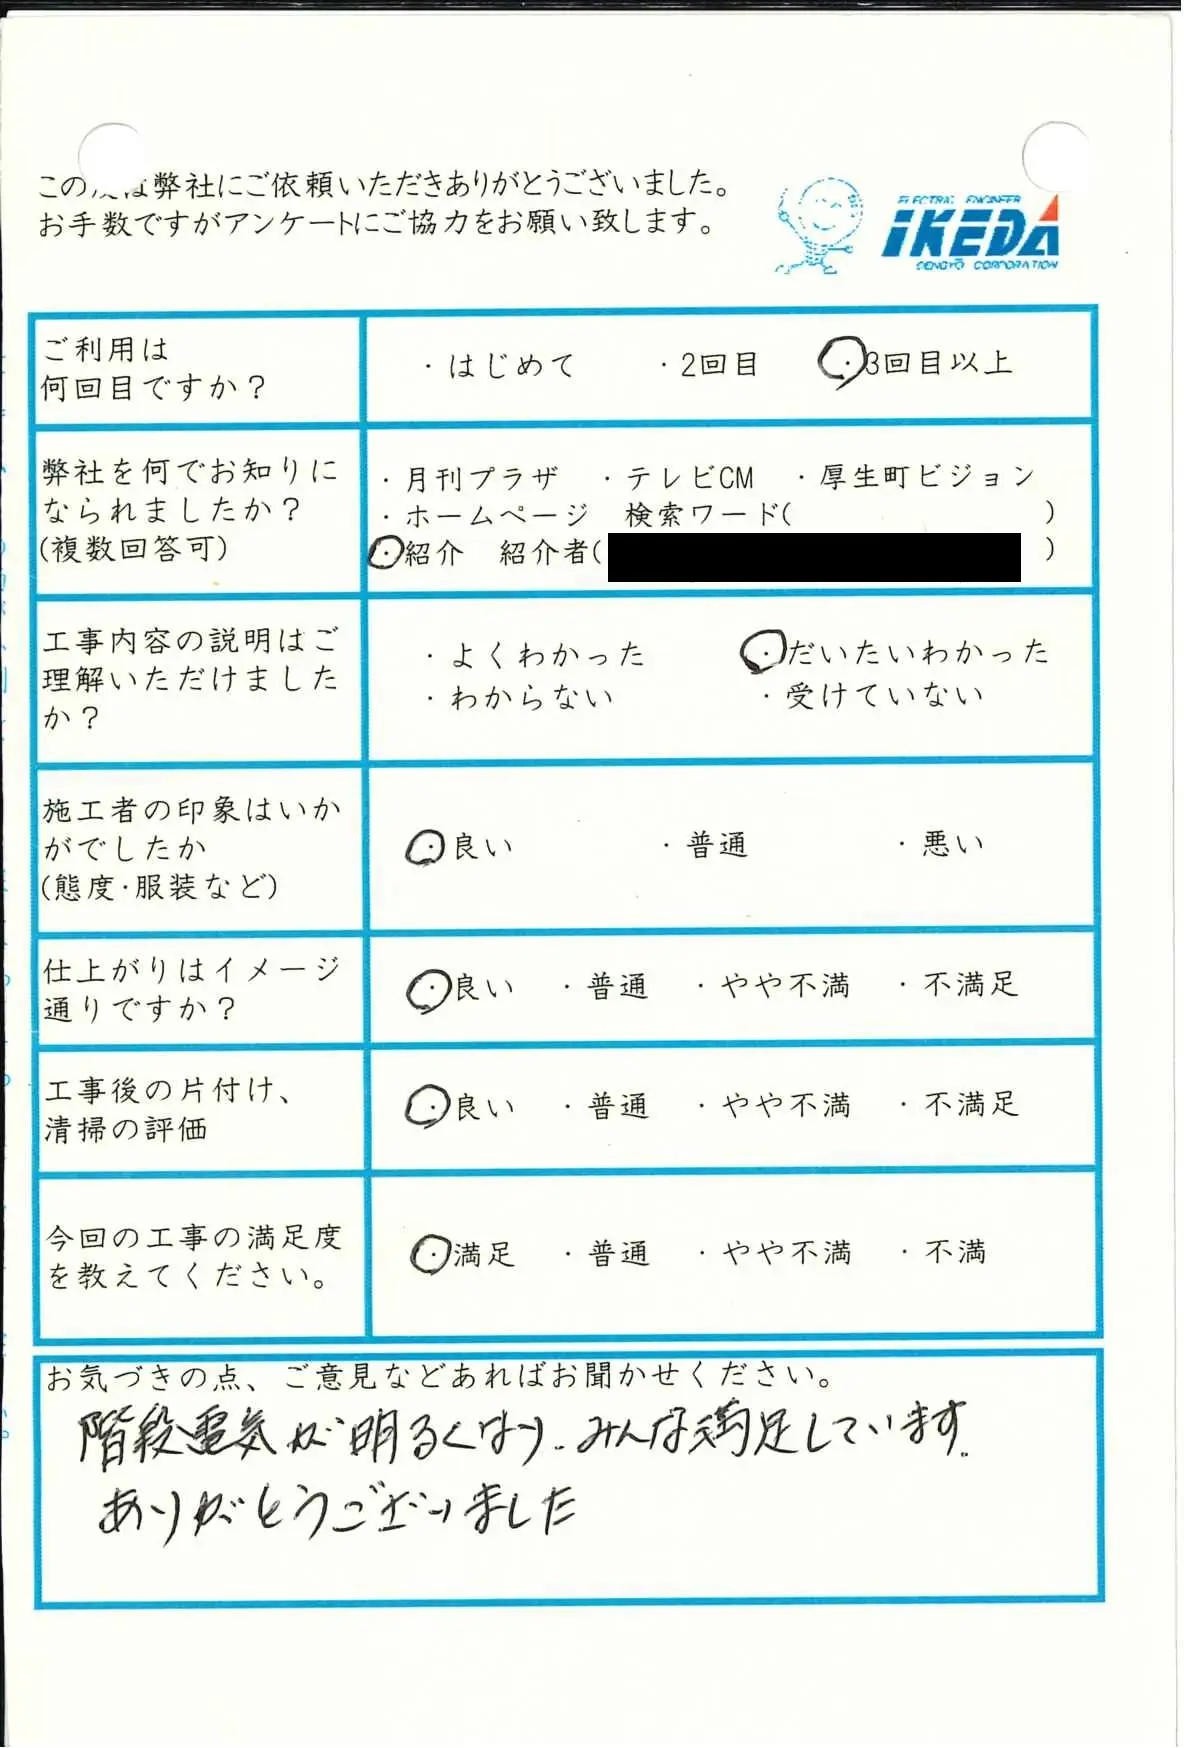 この は弊社にご依頼いただきありがとうございました。
お手数ですがアンケートにご協力をお願い致します。
ELECTRAL ENGINEER
IKEDA
DENGYO CORPORATION
ご利用は
何回目ですか？
・はじめて ・2回目 ・3回目以上
弊社を何でお知りに
なられましたか？
(複数回答可)
・月刊プラザ ・テレビCM ・厚生町ビジョン
・ホームページ 検索ワード( )
・紹介 紹介者( )
工事内容の説明はご
理解いただけました
か？
・よくわかった ・だいたいわかった
・わからない ・受けていない
施工者の印象はいか
がでしたか
(態度・服装など)
・良い ・普通 ・悪い
仕上がりはイメージ
通りですか？
・良い ・普通 ・やや不満 ・不満足
工事後の片付け、
清掃の評価
・良い ・普通 ・やや不満 ・不満足
今回の工事の満足度
を教えてください。
・満足 ・普通 ・やや不満 ・不満
お気づきの点、ご意見などあればお聞かせください。
階段電気が明るくなり、みんな満足しています。
ありがとうございました